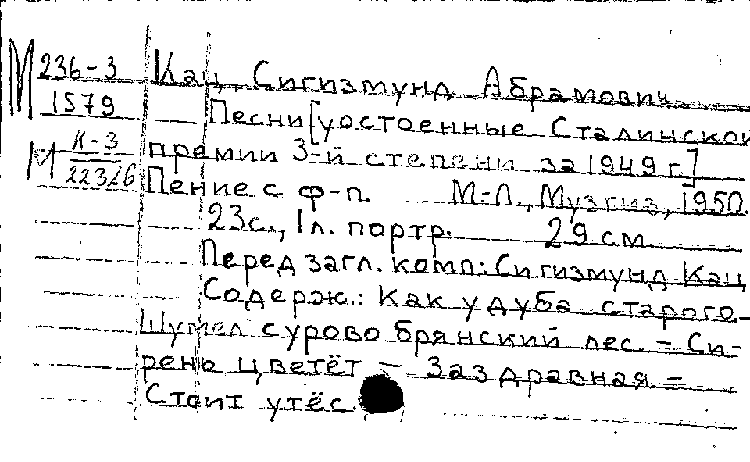 М 236-3 Кац, Сигизмунд Абрамович
1579 Песни [удостоенные Сталинской
М К-3 премии 3-й степени за 1949 г.]
223/6 Пение с ф-п. М.-Л., Музгиз, 1950.
23с., 1 л. портр. 29 см
Перед загл. комп.: Сигизмунд Кац
Содерж.: Как у дуба старого-
Шумел сурово брянский лес. - Си-
рень цветёт - Заздравная. -
Стоит утёс